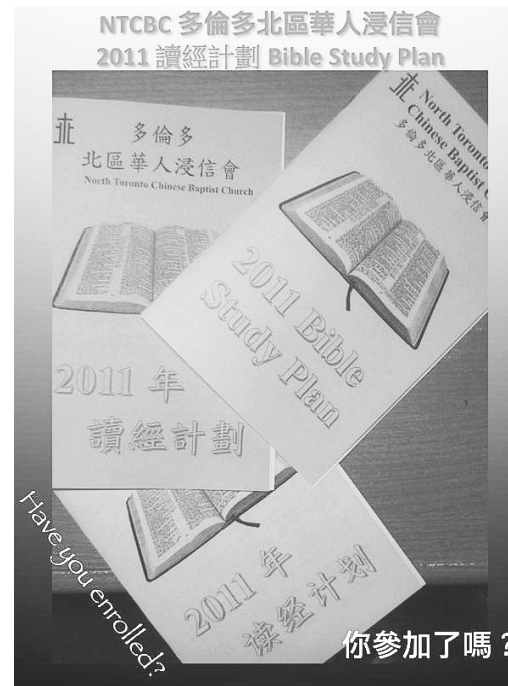 NTCBC 多倫多北區華人浸信會
2011 讀經計劃 Bible Study Plan
多倫多
北區華人浸信會
North Toronto Chinese Baptist Church
2011 年
讀經計劃
North Toronto
Chinese Baptist C
多倫多北區華人浸信會
2011 Bible
Study Plan
2011 年
读经计划
Have you enrolled?
你參加了嗎？